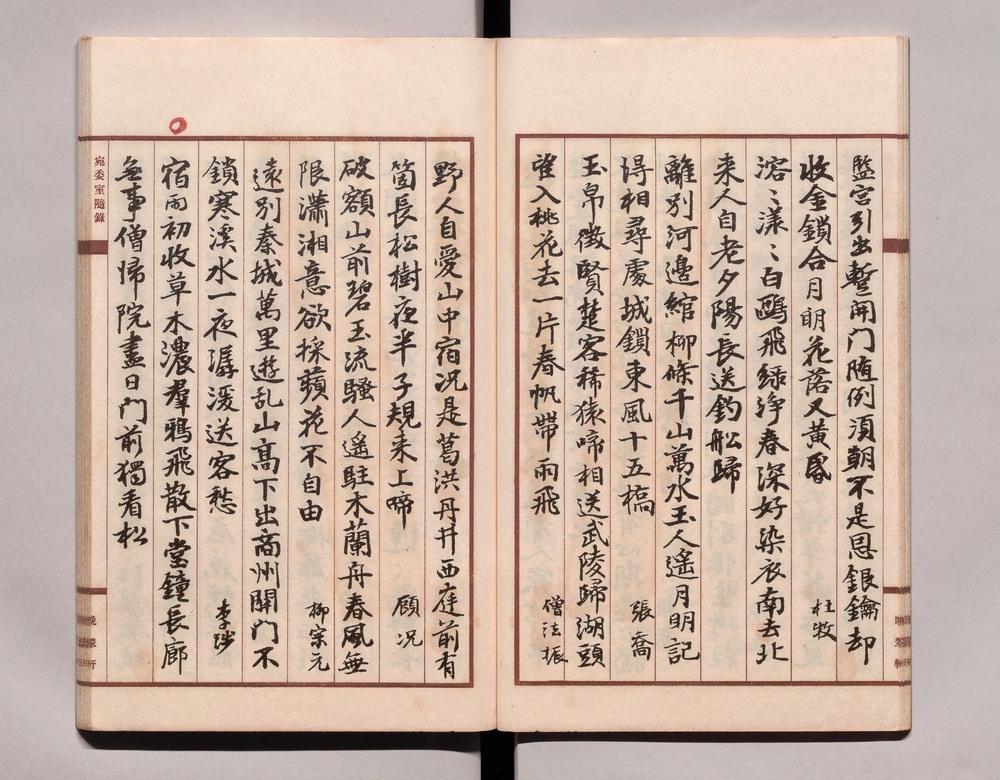 監宮引出暫開门随例湏朝不是恩銀鑰却
收金鎖合月明花落又黄昏
杜牧
溶〻漾〻白鷗飛緑淨春深好染衣南去北
来人自老夕陽長送釣船歸
離別河邊綰柳條千山萬水玉人遥月明記
得相尋處城鎖東風十五橋
張喬
玉帛徵賢楚客稀猿啼相送武陵歸湖頭
望入桃花去一片春帆帶雨飛
僧法振
野人自愛山中宿况是葛洪丹井西庭前有
箇長松樹夜半子規来上啼
顧况
破額山前碧玉流騷人遥駐木蘭舟春風無
限瀟湘意欲採蘋花不自由
柳宗元
遠別秦城萬里遊乱山高下出商州關门不
鎖寒溪水一夜潺湲送客愁
李涉
宿雨初收草木濃羣鴉飛散下堂鐘長廊
無事僧歸院盡日门前獨看松
宛委室隨錄